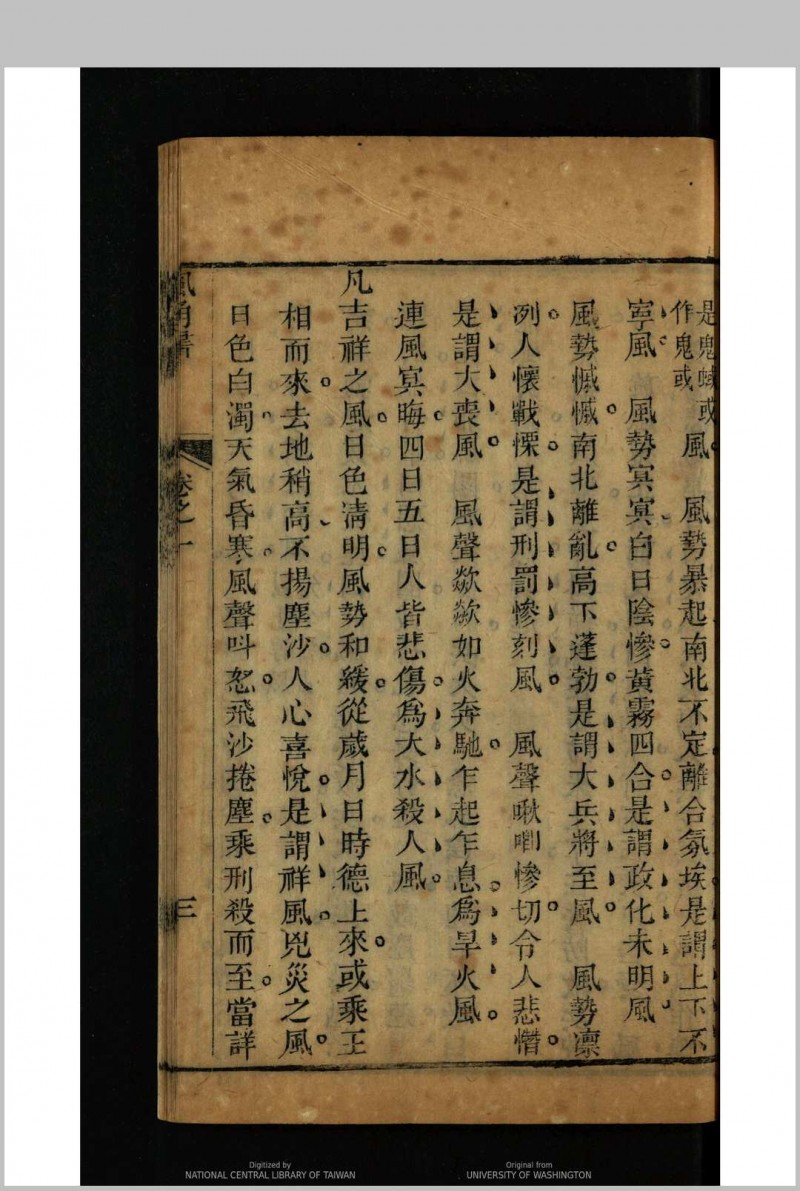 是鬼蜮或
作鬼或風　風勢暴起南北不定離合氛埃是謂上下不
寧風　風勢冥冥白日陰慘黃霧四合是謂政化未明風
風勢慽慽南北離亂高下蓬勃是謂大兵將至風　風勢凛
冽人懷戰慄是謂刑罰慘刻風　風聲啾唧慘切令人悲憯
是謂大喪風　風聲歘歘如火奔馳乍起乍息爲旱火風
連風冥晦四日五日人皆悲傷爲大水殺人風
凡吉祥之風日色淸明風勢和緩從歲月日時德上來或乘王
相而來去地稍高不揚塵沙人心喜悅是謂祥風兇災之風
日色白濁天氣昏寒風聲叫怒飛沙捲塵乘刑殺而至當詳
風角書
卷之一
三
Digitized by
NATIONAL CENTRAL LIBRARY OF TAIWAN
Original from
UNIVERSITY OF WASHINGTON